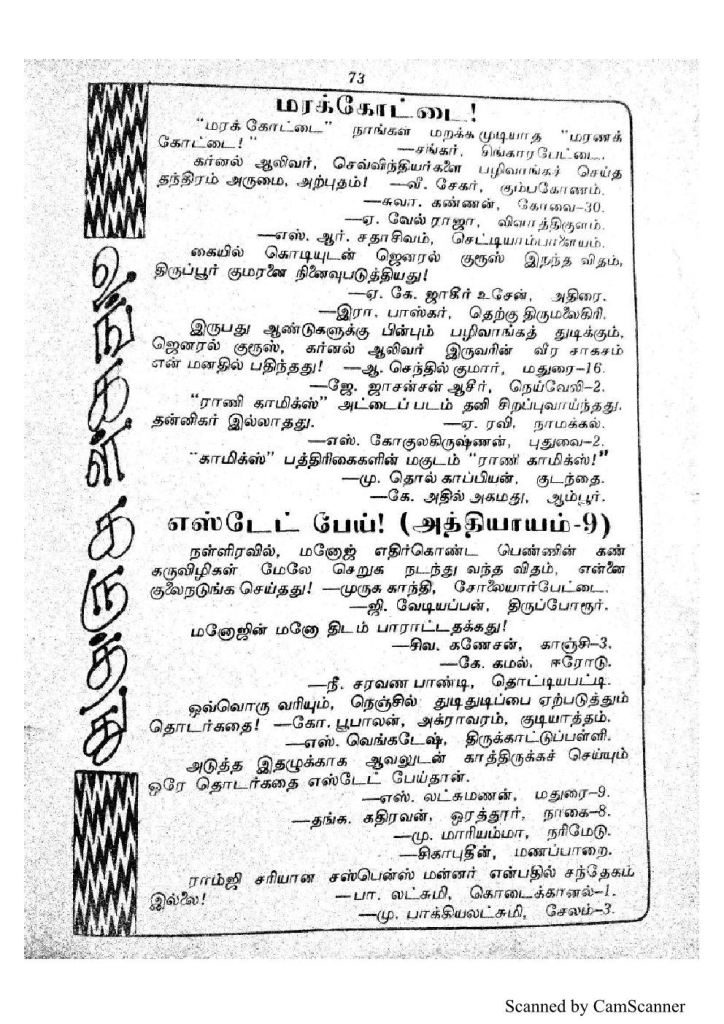 73
மரக்கோட்டை!
"மரக் கோட்டை" நாங்கள் மறக்க முடியாத "மரணக்
கோட்டை!" —சங்கர், சிங்காரபேட்டை.
கர்னல் ஆலிவர், செவ்விந்தியர்களை பழிவாங்கச் செய்த
தந்திரம் அருமை, அற்புதம்! —வீ. சேகர், கும்பகோணம்.
—சுவா. கண்ணன், கோவை–30.
—ஏ. வேல் ராஜா, விளாத்திகுளம்.
—எஸ். ஆர். சதாசிவம், செட்டியாம்பாளையம்.
கையில் கொடியுடன் ஜெனரல் குரூஸ் இறந்த விதம்,
திருப்பூர் குமரனை நினைவுபடுத்தியது!
—ஏ. கே. ஜாகீர் உசேன், அதிரை.
—இரா. பாஸ்கர், தெற்கு திருமலைகிரி.
இருபது ஆண்டுகளுக்கு பின்பும் பழிவாங்கத் துடிக்கும்,
ஜெனரல் குரூஸ், கர்னல் ஆலிவர் இருவரின் வீர சாகசம்
என் மனதில் பதிந்தது! —ஆ. செந்தில் குமார், மதுரை–16.
—ஜே. ஜாசன்சன் ஆசீர், நெய்வேலி–2.
"ராணி காமிக்ஸ்" அட்டைப் படம் தனி சிறப்புவாய்ந்தது.
தன்னிகர் இல்லாதது. —ஏ. ரவி, நாமக்கல்.
—எஸ். கோகுலகிருஷ்ணன், புதுவை–2.
"காமிக்ஸ்" பத்திரிகைகளின் மகுடம் "ராணி காமிக்ஸ்!"
—மு. தொல் காப்பியன், குடந்தை.
—கே. அதில் அகமது, ஆம்பூர்.
எஸ்டேட் பேய்! (அத்தியாயம்-9)
நள்ளிரவில், மனோஜ் எதிர்கொண்ட பெண்ணின் கண்
கருவிழிகள் மேலே செறுக நடந்து வந்த விதம், என்னை
குலைநடுங்க செய்தது! —முருக காந்தி, சோலையார்பேட்டை.
—ஜி. வேடியப்பன், திருப்போரூர்.
மனோஜின் மனோ திடம் பாராட்டதக்கது!
—சிவ. கணேசன், காஞ்சி–3.
—கே. கமல், ஈரோடு.
—நீ. சரவண பாண்டி, தொட்டியபட்டி.
ஒவ்வொரு வரியும், நெஞ்சில் துடிதுடிப்பை ஏற்படுத்தும்
தொடர்கதை! —கோ. பூபாலன், அக்ராவரம், குடியாத்தம்.
—எஸ். வெங்கடேஷ், திருக்காட்டுப்பள்ளி.
அடுத்த இதழுக்காக ஆவலுடன் காத்திருக்கச் செய்யும்
ஒரே தொடர்கதை எஸ்டேட் பேய்தான்.
—எஸ். லட்சுமணன், மதுரை–9.
—தங்க. கதிரவன், ஒரத்தூர், நாகை–8.
—மு. மாரியம்மா, நரிமேடு.
—சிகாபுதீன், மணப்பாறை.
ராம்ஜி சரியான சஸ்பென்ஸ் மன்னர் என்பதில் சந்தேகம்
இல்லை! —பா. லட்சுமி, கொடைக்கானல்–1.
—மு. பாக்கியலட்சுமி, சேலம்–3.
உங்கள் கருத்து
Scanned by CamScanner